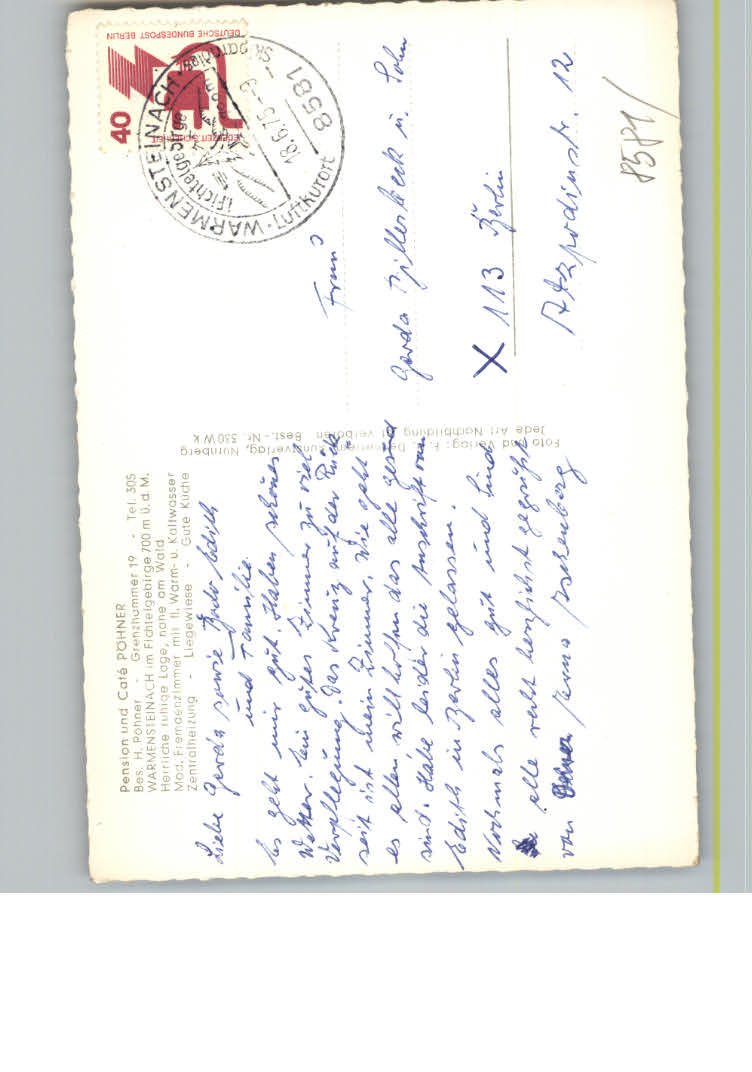 Pension und Café PÖHNER
Bes. H. Pöhner - Grenzhammer 19 - Tel. 305
WARMENSTEINACH im Fichtelgebirge 700 m ü. d. M.
Herrliche ruhige Lage, nahe am Wald
Mod. Fremdenzimmer mit fl. Warm- u. Kaltwasser
Zentralheizung - Liegewiese - Gute Küche
Liebe Gerda sowie Bodo Edith
und Familie.
Es geht mir gut. Haben schönes
Wetter. Ein gutes Zimmer zu viel
Verpflegung. Das Kreuz auf der Rück
seit ist mein Zimmer. Wie geht
es allen will hoffen das alle gesund
sind. Habe leider die Anschrift von
Edith in Berlin gelassen.
Nochmals alles gut und sind
alle recht herzlichst gegrüßt
von
Foto und Verlag: Kunstverlag, Nürnberg
Jede Art Nachbildung ist verboten Best.-Nr. 550 W k
DEUTSCHE BUNDESPOST BERLIN
JEDERZEIT SICHERHEIT
40
WARMENSTEINACH · Luftkurort
(Fichtelgebirge)
8581
18.6.75-9
Gerda u. Sohn
X 113 Berlin
12
8581/